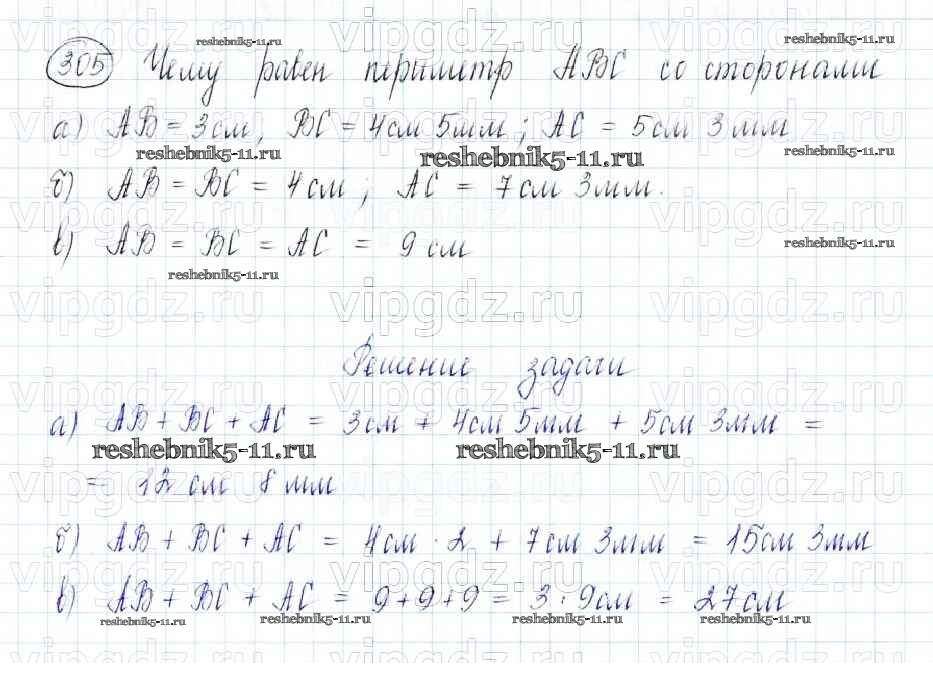 305 Чему равен периметр ABC со сторонами
а) AB = 3см, BC = 4см 5мм; AC = 5см 3мм
б) AB = BC = 4см; AC = 7см 3мм.
в) AB = BC = AC = 9см
Решение задачи
а) AB + BC + AC = 3см + 4см 5мм + 5см 3мм =
= 12 см 8 мм
б) AB + BC + AC = 4см · 2 + 7см 3мм = 15см 3мм
в) AB + BC + AC = 9+9+9 = 3 · 9см = 27см
vipgdz.ru
reshebnik5-11.ru